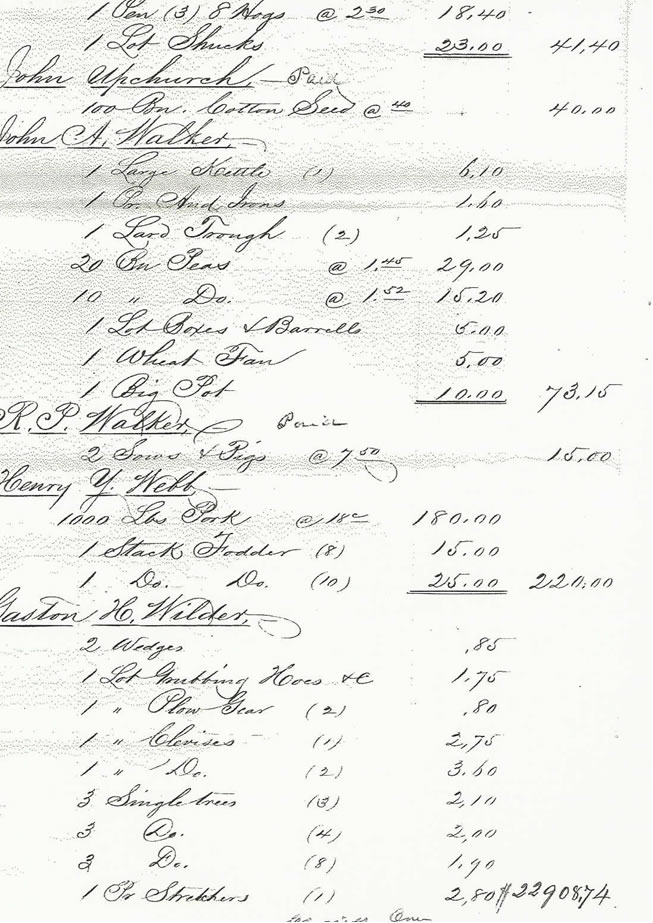 1 Pen (3) 8 Hogs @ 2 30 18.40
1 Lot Shucks 23.00 41.40
John Upchurch, Paid
100 Bu. Cotton Seed @ 40 40.00
John A. Walker,
1 Large Kettle (1) 6.10
1 Pr. And Irons 1.60
1 Lard Trough (2) 1.25
20 Bu Peas @ 1.45 29.00
10 " Do. @ 1.52 15.20
1 Lot Boxes & Barrells 5.00
1 Wheat Fan 5.00
1 Big Pot 10.00 73.15
R. P. Walker, Paid
2 Sows & Pigs @ 7 50 15.00
Henry Y. Webb
1000 Lbs Pork @ 18c 180.00
1 Stack Fodder (8) 15.00
1 Do. Do. (10) 25.00 220.00
Gaston H. Wilder,
2 Wedges .85
1 Lot Grubbing Hoes &c 1.75
1 " Plow Gear (2) .80
1 " Clevises (1) 2.75
1 " Do. (2) 3.60
3 Singletrees (3) 2.10
3 Do. (4) 2.00
3 Do. (8) 1.90
1 Pr Stretchers (1) 2.80 # 22908.74